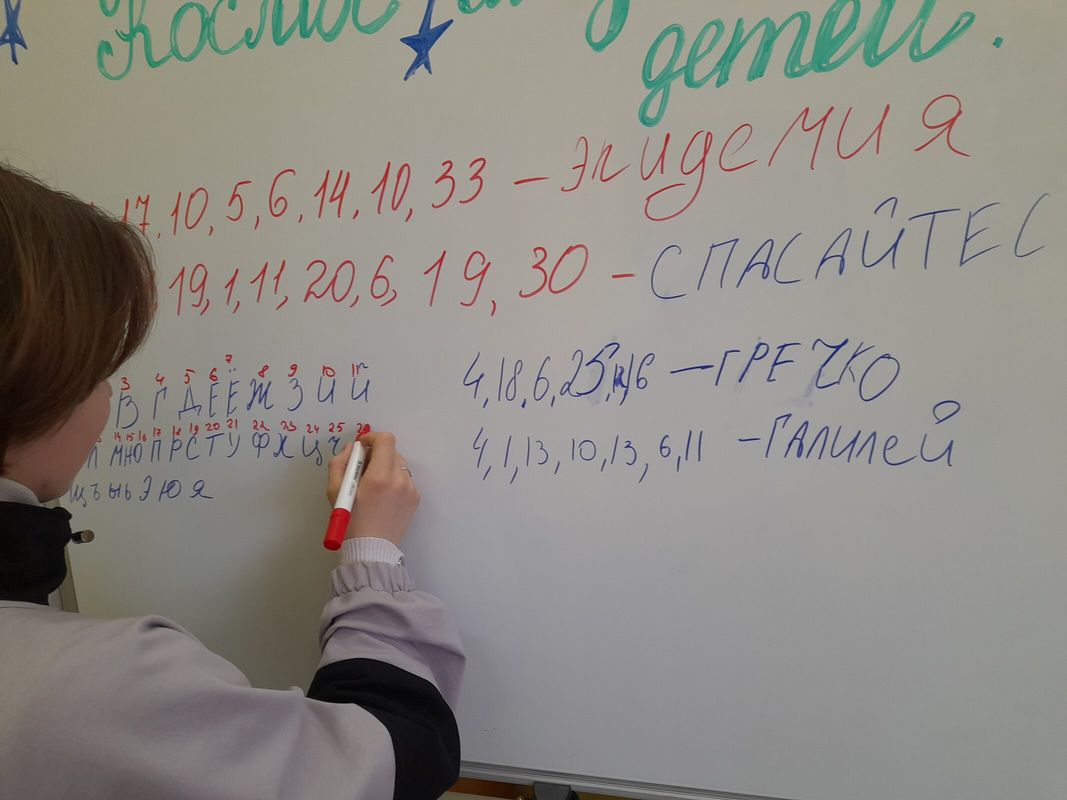 Космос
детей.
17, 10, 5, 6, 14, 10, 33 – ЭПИДЕМИЯ
19, 1, 11, 20, 6, 19, 30 – СПАСАЙТЕС
4, 18, 6, 25, 12, 16 – ГРЕЧКО
4, 1, 13, 10, 13, 6, 11 – ГАЛИЛЕЙ
3 4 5 6 7 8 9 10 11
В Г Д Е Ё Ж З И Й
14 15 16 17 18 19 20 21 22 23 24 25
Л М Н О П Р С Т У Ф Х Ц Ч
Щ Ъ Ы Ь Э Ю Я